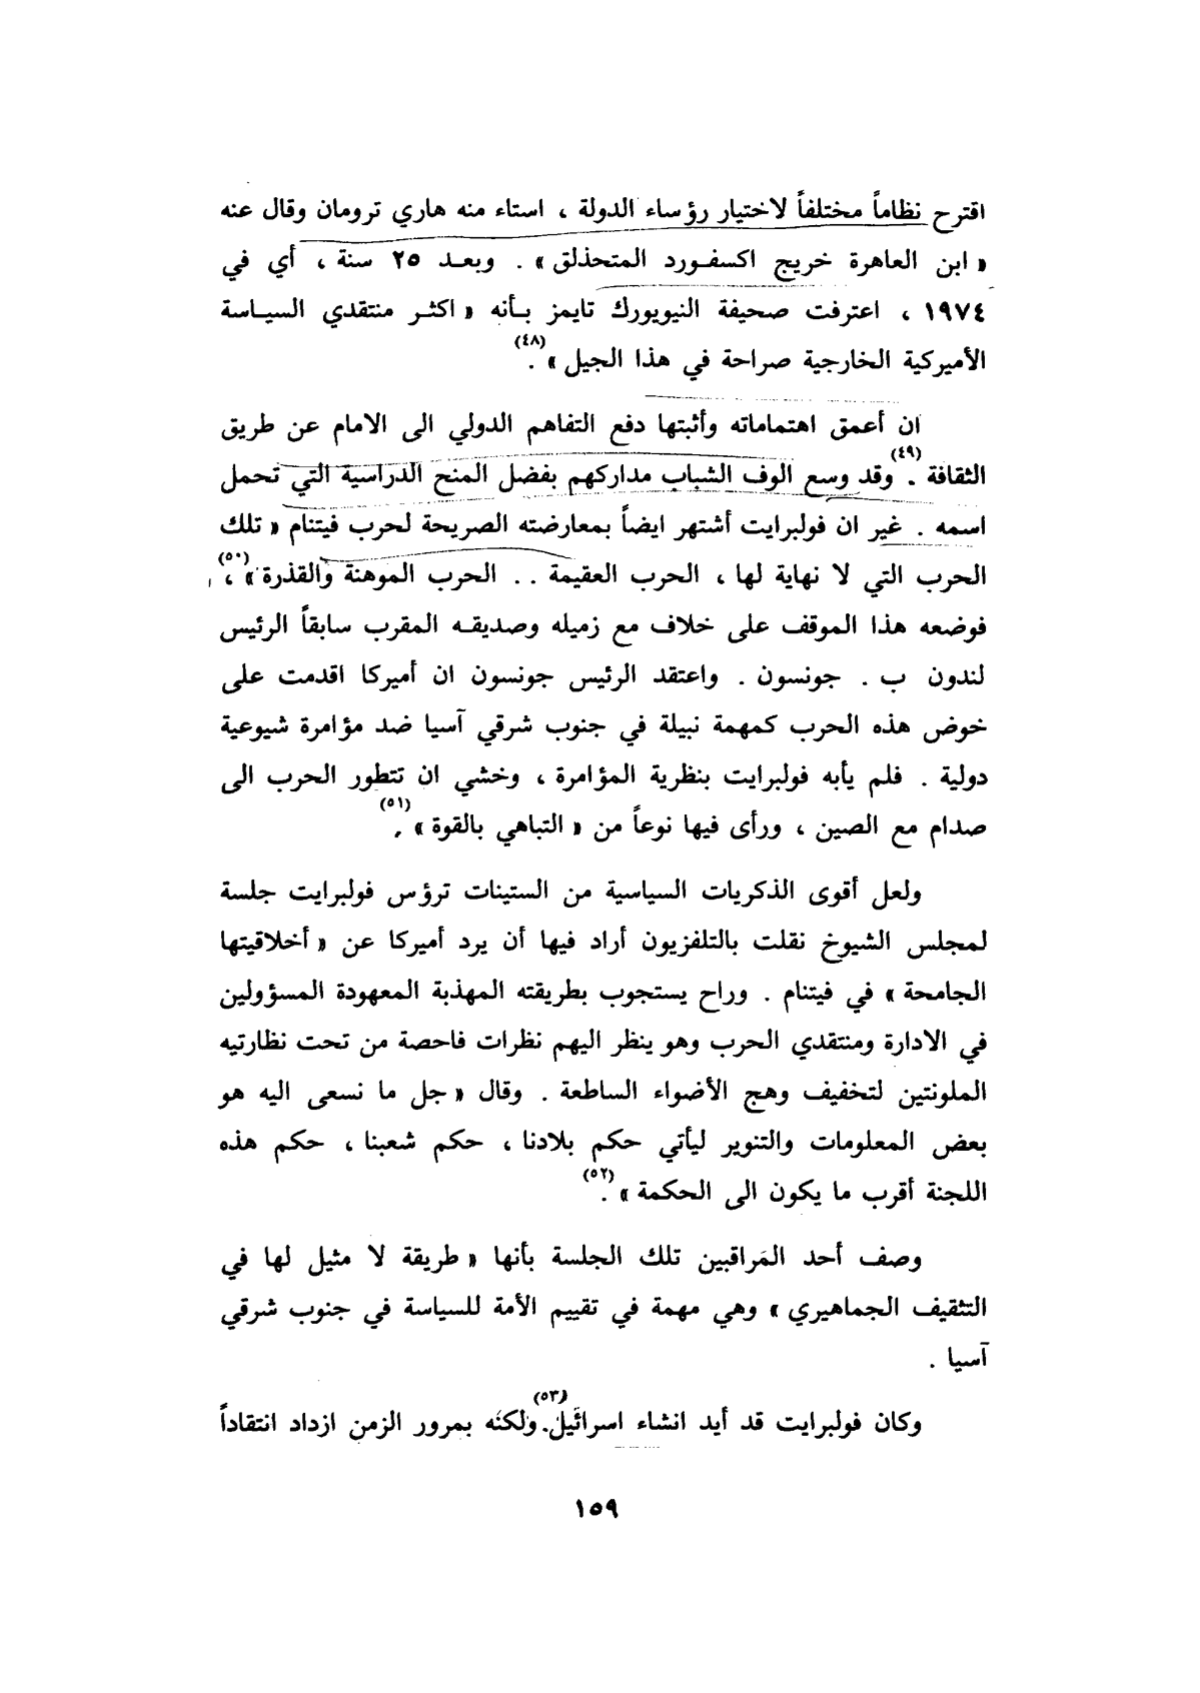 اقترح نظاماً مختلفاً لاختيار رؤساء الدولة ، استاء منه هاري ترومان وقال عنه
« ابن العاهرة خريج اكسفورد المتحذلق » . وبعد ٢٥ سنة ، أي في
١٩٧٤ ، اعترفت صحيفة النيويورك تايمز بأنه « اكثر منتقدي السياسة
الأميركية الخارجية صراحة في هذا الجيل »(٤٨) .
ان أعمق اهتماماته وأثبتها دفع التفاهم الدولي الى الامام عن طريق
الثقافة(٤٩) . وقد وسع الوف الشباب مداركهم بفضل المنح الدراسية التي تحمل
اسمه . غير ان فولبرايت أشتهر ايضاً بمعارضته الصريحة لحرب فيتنام « تلك
الحرب التي لا نهاية لها ، الحرب العقيمة . . الحرب الموهنة والقذرة »(٥٠) ،
فوضعه هذا الموقف على خلاف مع زميله وصديقه المقرب سابقاً الرئيس
لندون ب . جونسون . واعتقد الرئيس جونسون ان أميركا اقدمت على
خوض هذه الحرب كمهمة نبيلة في جنوب شرقي آسيا ضد مؤامرة شيوعية
دولية . فلم يأبه فولبرايت بنظرية المؤامرة ، وخشي ان تتطور الحرب الى
صدام مع الصين ، ورأى فيها نوعاً من « التباهي بالقوة »(٥١) .
ولعل أقوى الذكريات السياسية من الستينات ترؤس فولبرايت جلسة
لمجلس الشيوخ نقلت بالتلفزيون أراد فيها أن يرد أميركا عن « أخلاقيتها
الجامحة » في فيتنام . وراح يستجوب بطريقته المهذبة المعهودة المسؤولين
في الادارة ومنتقدي الحرب وهو ينظر اليهم نظرات فاحصة من تحت نظارتيه
الملونتين لتخفيف وهج الأضواء الساطعة . وقال « جل ما نسعى اليه هو
بعض المعلومات والتنوير ليأتي حكم بلادنا ، حكم شعبنا ، حكم هذه
اللجنة أقرب ما يكون الى الحكمة »(٥٢) .
وصف أحد المراقبين تلك الجلسة بأنها « طريقة لا مثيل لها في
التثقيف الجماهيري » وهي مهمة في تقييم الأمة للسياسة في جنوب شرقي
آسيا .
وكان فولبرايت قد أيد انشاء اسرائيل(٥٣) . ولكنه بمرور الزمن ازداد انتقاداً
١٥٩